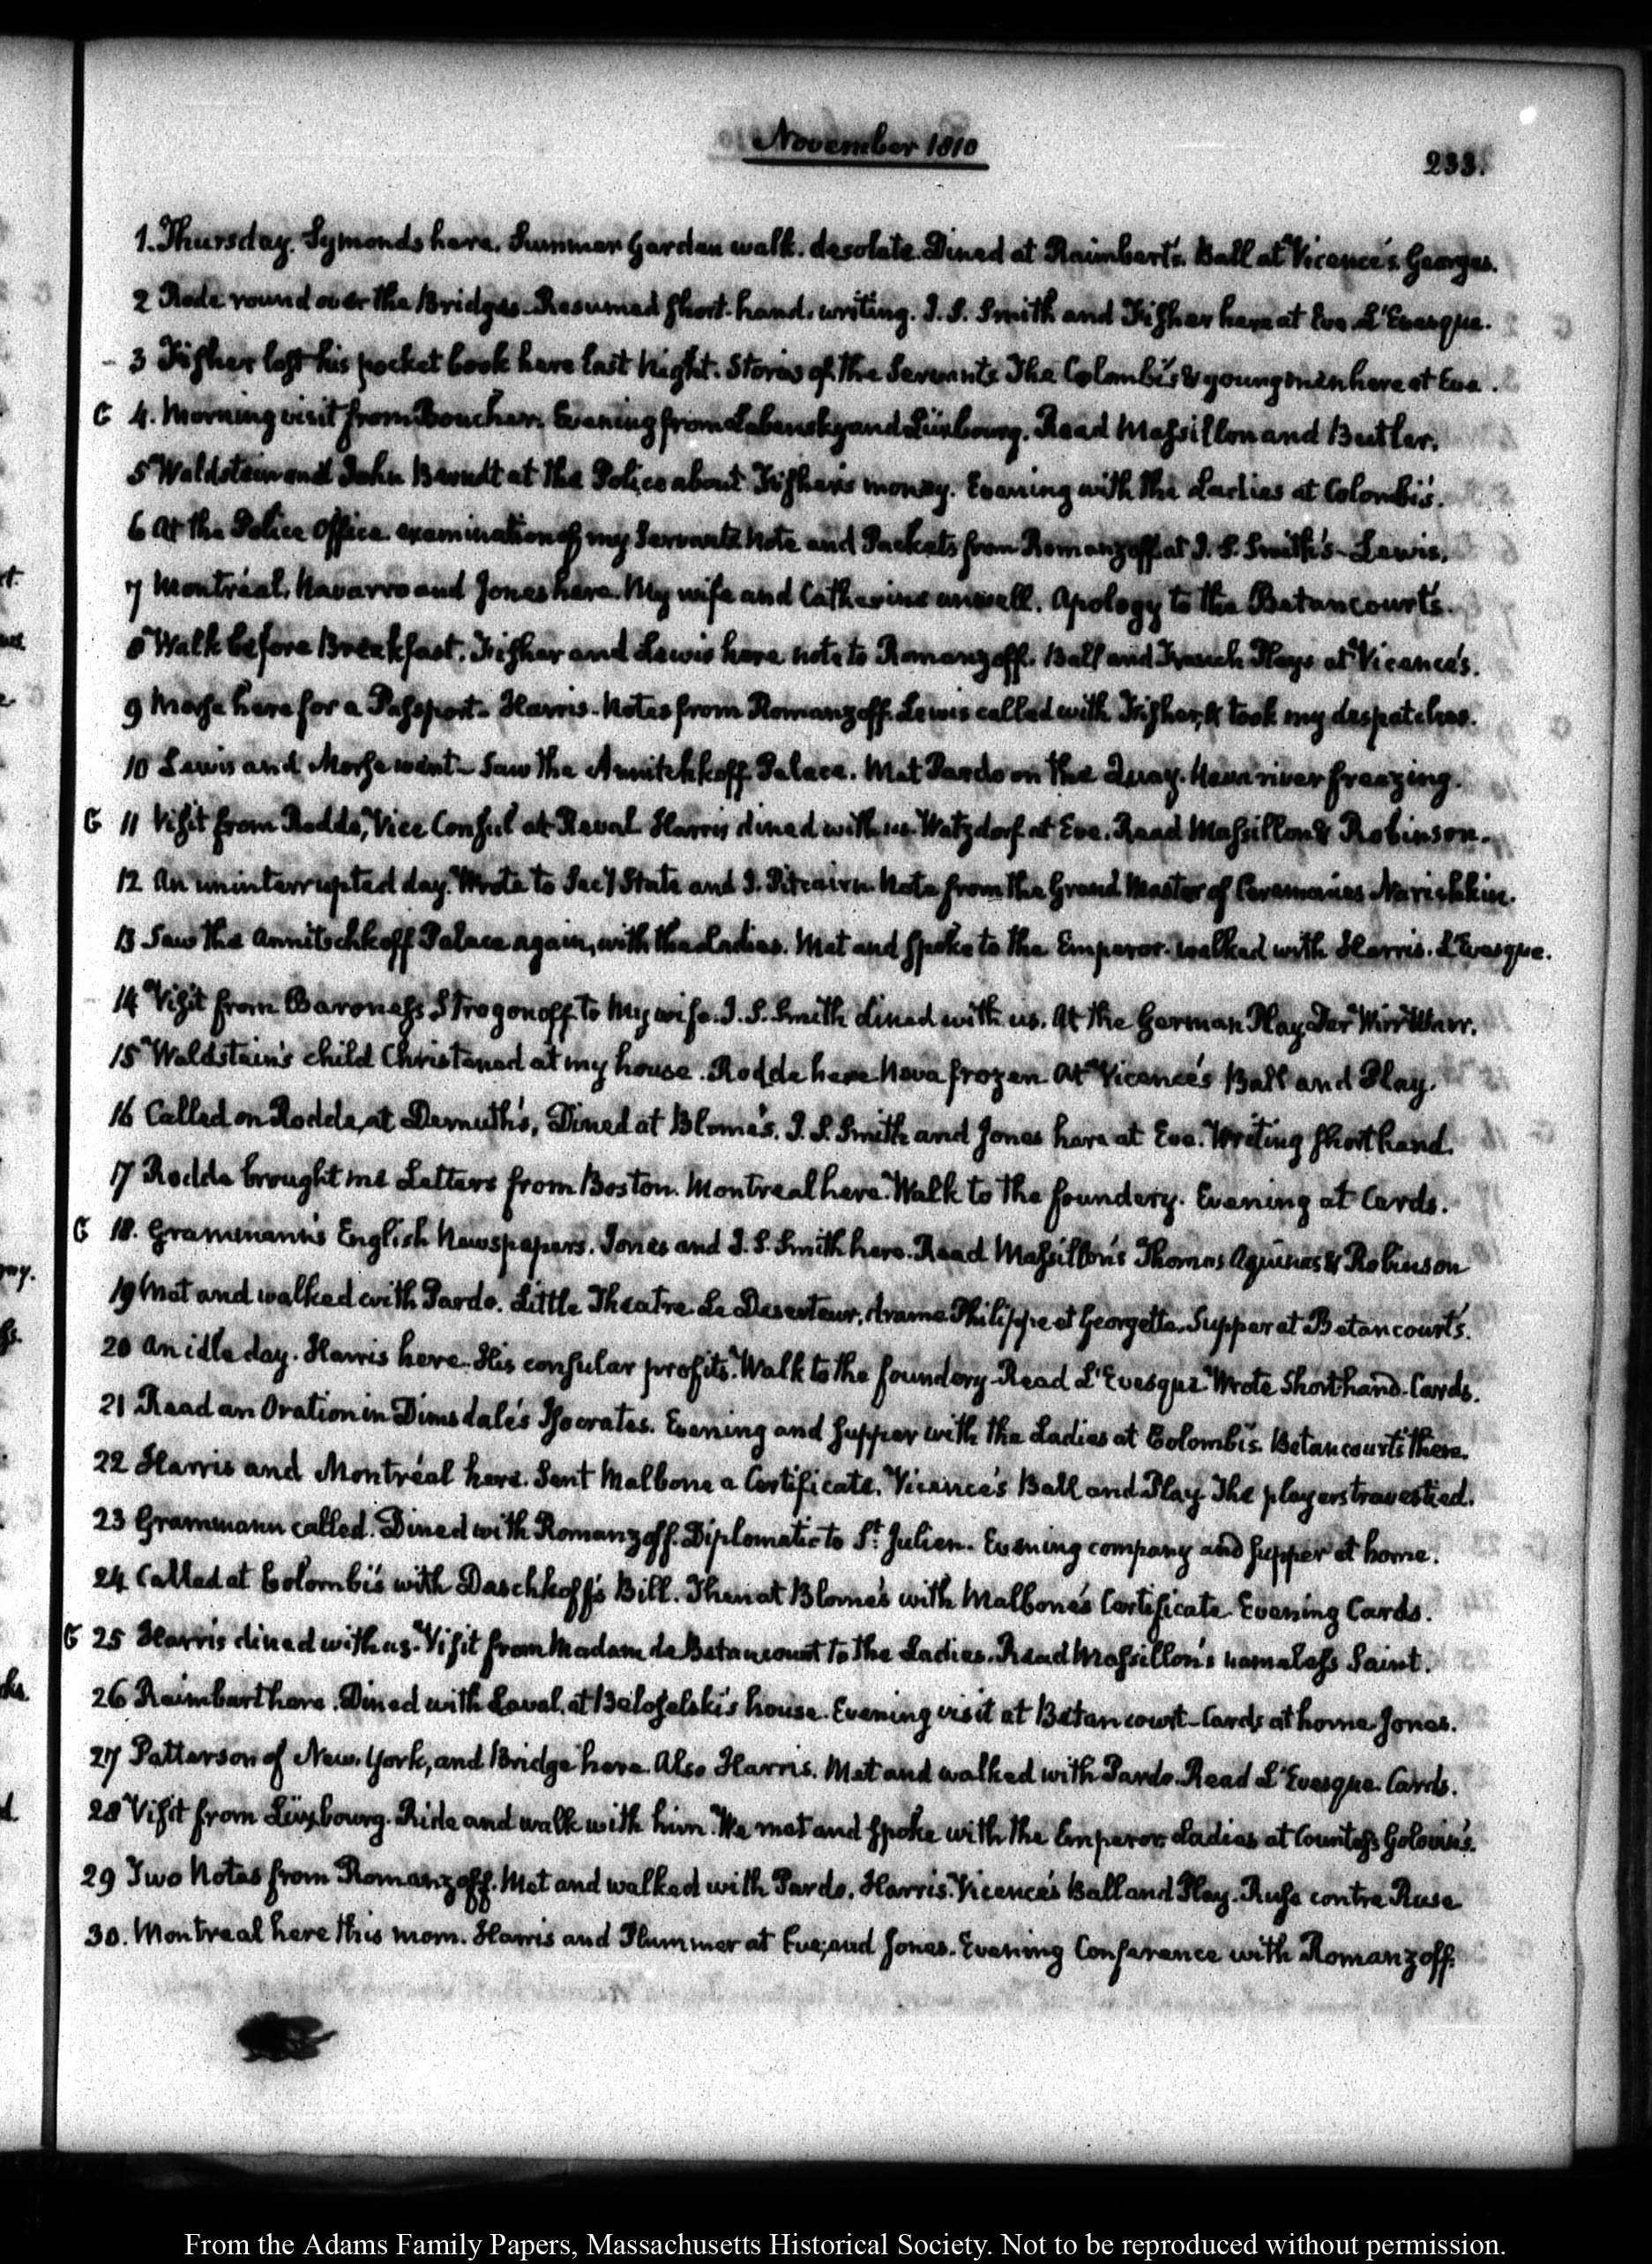 November 1810
233.
1. Thursday. Symonds here. Summer Garden walk. desolate. Dined at Raimbert's. Ball at Vicence's. Georges.
2 Rode round over the Bridges. Resumed short-hand. writing. J. S. Smith and Fisher here at Eve. L'Evesque.
3 Fisher lost his pocket book here last Night. Stories of the Servants. The Colombi's & young men here at Eve.
G 4. Morning visit from Boucher. Evening from Labensky and Lüxbourg. Read Massillon and Butler.
5 Waldstein and John Berndt at the Police about Fisher's money. Evening with the Ladies at Colombi's.
6 At the Police Office. examination of my Servants. Note and Packets from Romanzoff. at J. S. Smith's - Lewis.
7 Montréal. Navarro and Jones here. My wife and Catherine unwell. Apology to the Betancourt's.
8 Walk before Breakfast. Fisher and Lewis here. note to Romanzoff. Ball and French Plays at Vicence's.
9 Morse here for a Passport. Harris. Notes from Romanzoff. Lewis called with Fisher, & took my despatches.
10 Lewis and Morse went. Saw the Annitchkoff Palace. Met Pardo on the Quay. Neva river freezing.
G 11 Visit from Rodde, Vice Consul at Reval. Harris dined with us. Watzdorf at Eve. Read Massillon & Robinson.
12 An uninterrupted day. Wrote to Sec'y State and J. Pitcairn. Note from the Grand Master of Ceremonies Narishkin.
13 Saw the Annitschkoff Palace again, with the Ladies. Met and spoke to the Emperor. walked with Harris. L'Evesque.
14 Visit from Baroness Strogonoff to my wife. J. S. Smith dined with us. At the German Play Der Wirr Warr.
15 Waldstein's child Christened at my house. Rodde here. Neva frozen. At Vicence's Ball and Play.
16 Called on Rodde, at Demuth's. Dined at Blome's. J. S. Smith and Jones here at Eve. Writing shorthand.
17 Rodde brought me Letters from Boston. Montreal here. Walk to the foundery. Evening at Cards.
G 18. Grammann's English Newspapers. Jones and J. S. Smith here. Read Massillon's Thomas Aquinas & Robinson
19 Met and walked with Pardo. Little Theatre. Le Deserteur, drame. Philippe et Georgette. Supper at Betancourt's.
20 An idle day. Harris here. His consular profits. Walk to the foundery. Read L'Evesque. Wrote Shorthand. Cards.
21 Read an Oration in Dimsdale's Isocrates. Evening and supper with the Ladies at Colombi's. Betancourts there.
22 Harris and Montréal here. Sent Malbone a Certificate. Vicence's Ball and Play. The players travestied.
23 Grammann called. Dined with Romanzoff. Diplomatic to St. Julien. Evening company and supper at home.
24 Called at Colombi's with Daschkoff's Bill. Then at Blome's with Malbone's Certificate. Evening Cards.
G 25 Harris dined with us. Visit from Madam de Betancourt to the Ladies. Read Massillon's nameless Saint.
26 Raimbert here. Dined with Laval, at Beloselski's house. Evening visit at Betancourt. Cards at home. Jones.
27 Patterson of New-York, and Bridge here. Also Harris. Met and walked with Pardo. Read L'Evesque. Cards.
28 Visit from Lüxbourg. Ride and walk with him. We met and spoke with the Emperor. Ladies at Countess Golovin's.
29 Two Notes from Romanzoff. Met and walked with Pardo. Harris. Vicence's Ball and Play. Ruse contre Ruse
30. Montreal here this morn. Harris and Plummer at Eve, and Jones. Evening Conference with Romanzoff.
From the Adams Family Papers, Massachusetts Historical Society. Not to be reproduced without permission.